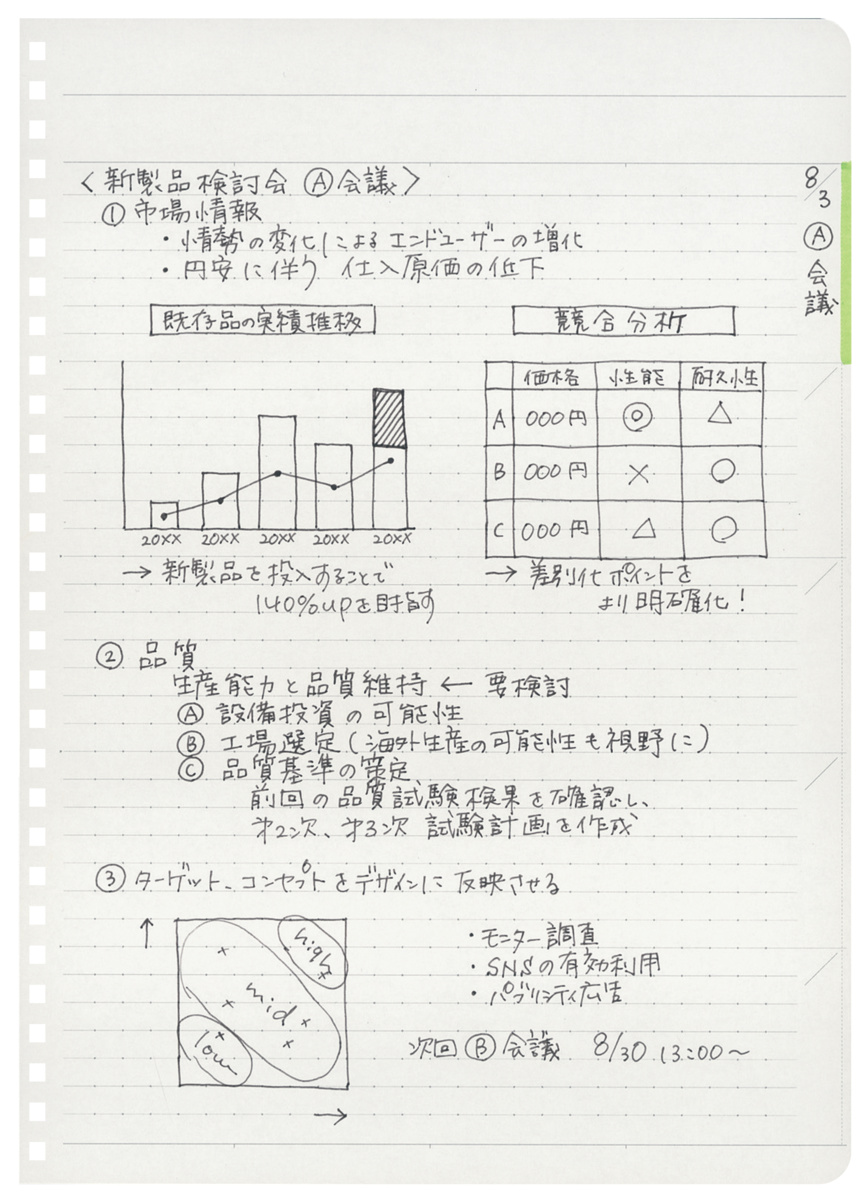 〈新製品検討会 Ⓐ会議〉
8/3 Ⓐ会議
① 市場情報
・情勢の変化によるエンドユーザーの増化
・円安に伴う 仕入原価の低下
既存品の実績推移
20XX 20XX 20XX 20XX 20XX
→ 新製品を投入することで
140%upを目指す
競合分析
価格 性能 耐久性
A 000円 ◎ △
B 000円 × ○
C 000円 △ ○
→ 差別化ポイントを
より明確化！
② 品質
生産能力と品質維持 ← 要検討
Ⓐ 設備投資の可能性
Ⓑ 工場選定(海外生産の可能性も視野に)
Ⓒ 品質基準の策定
前回の品質試験検果を確認し、
第2次、第3次 試験計画を作成
③ ターゲット、コンセプトをデザインに反映させる
↑
high
mid
low
→
・モニター調査
・SNSの有効利用
・パブリシティ広告
次回 Ⓑ会議 8/30 13:00〜